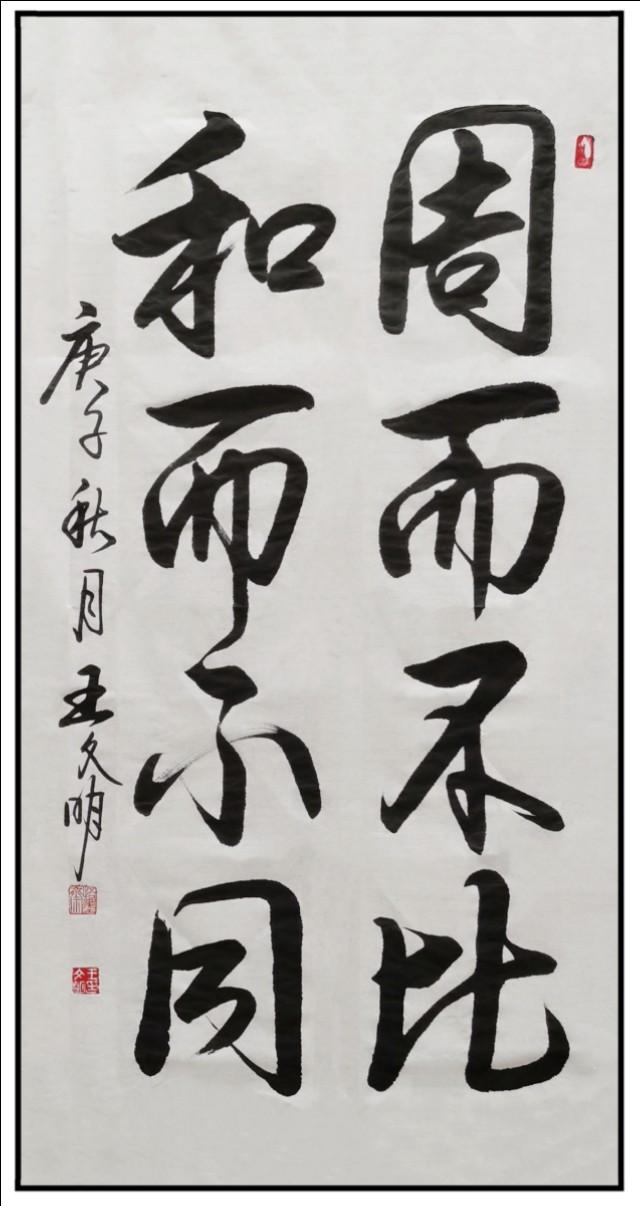 周而不比
和而不同
庚子秋月王文明